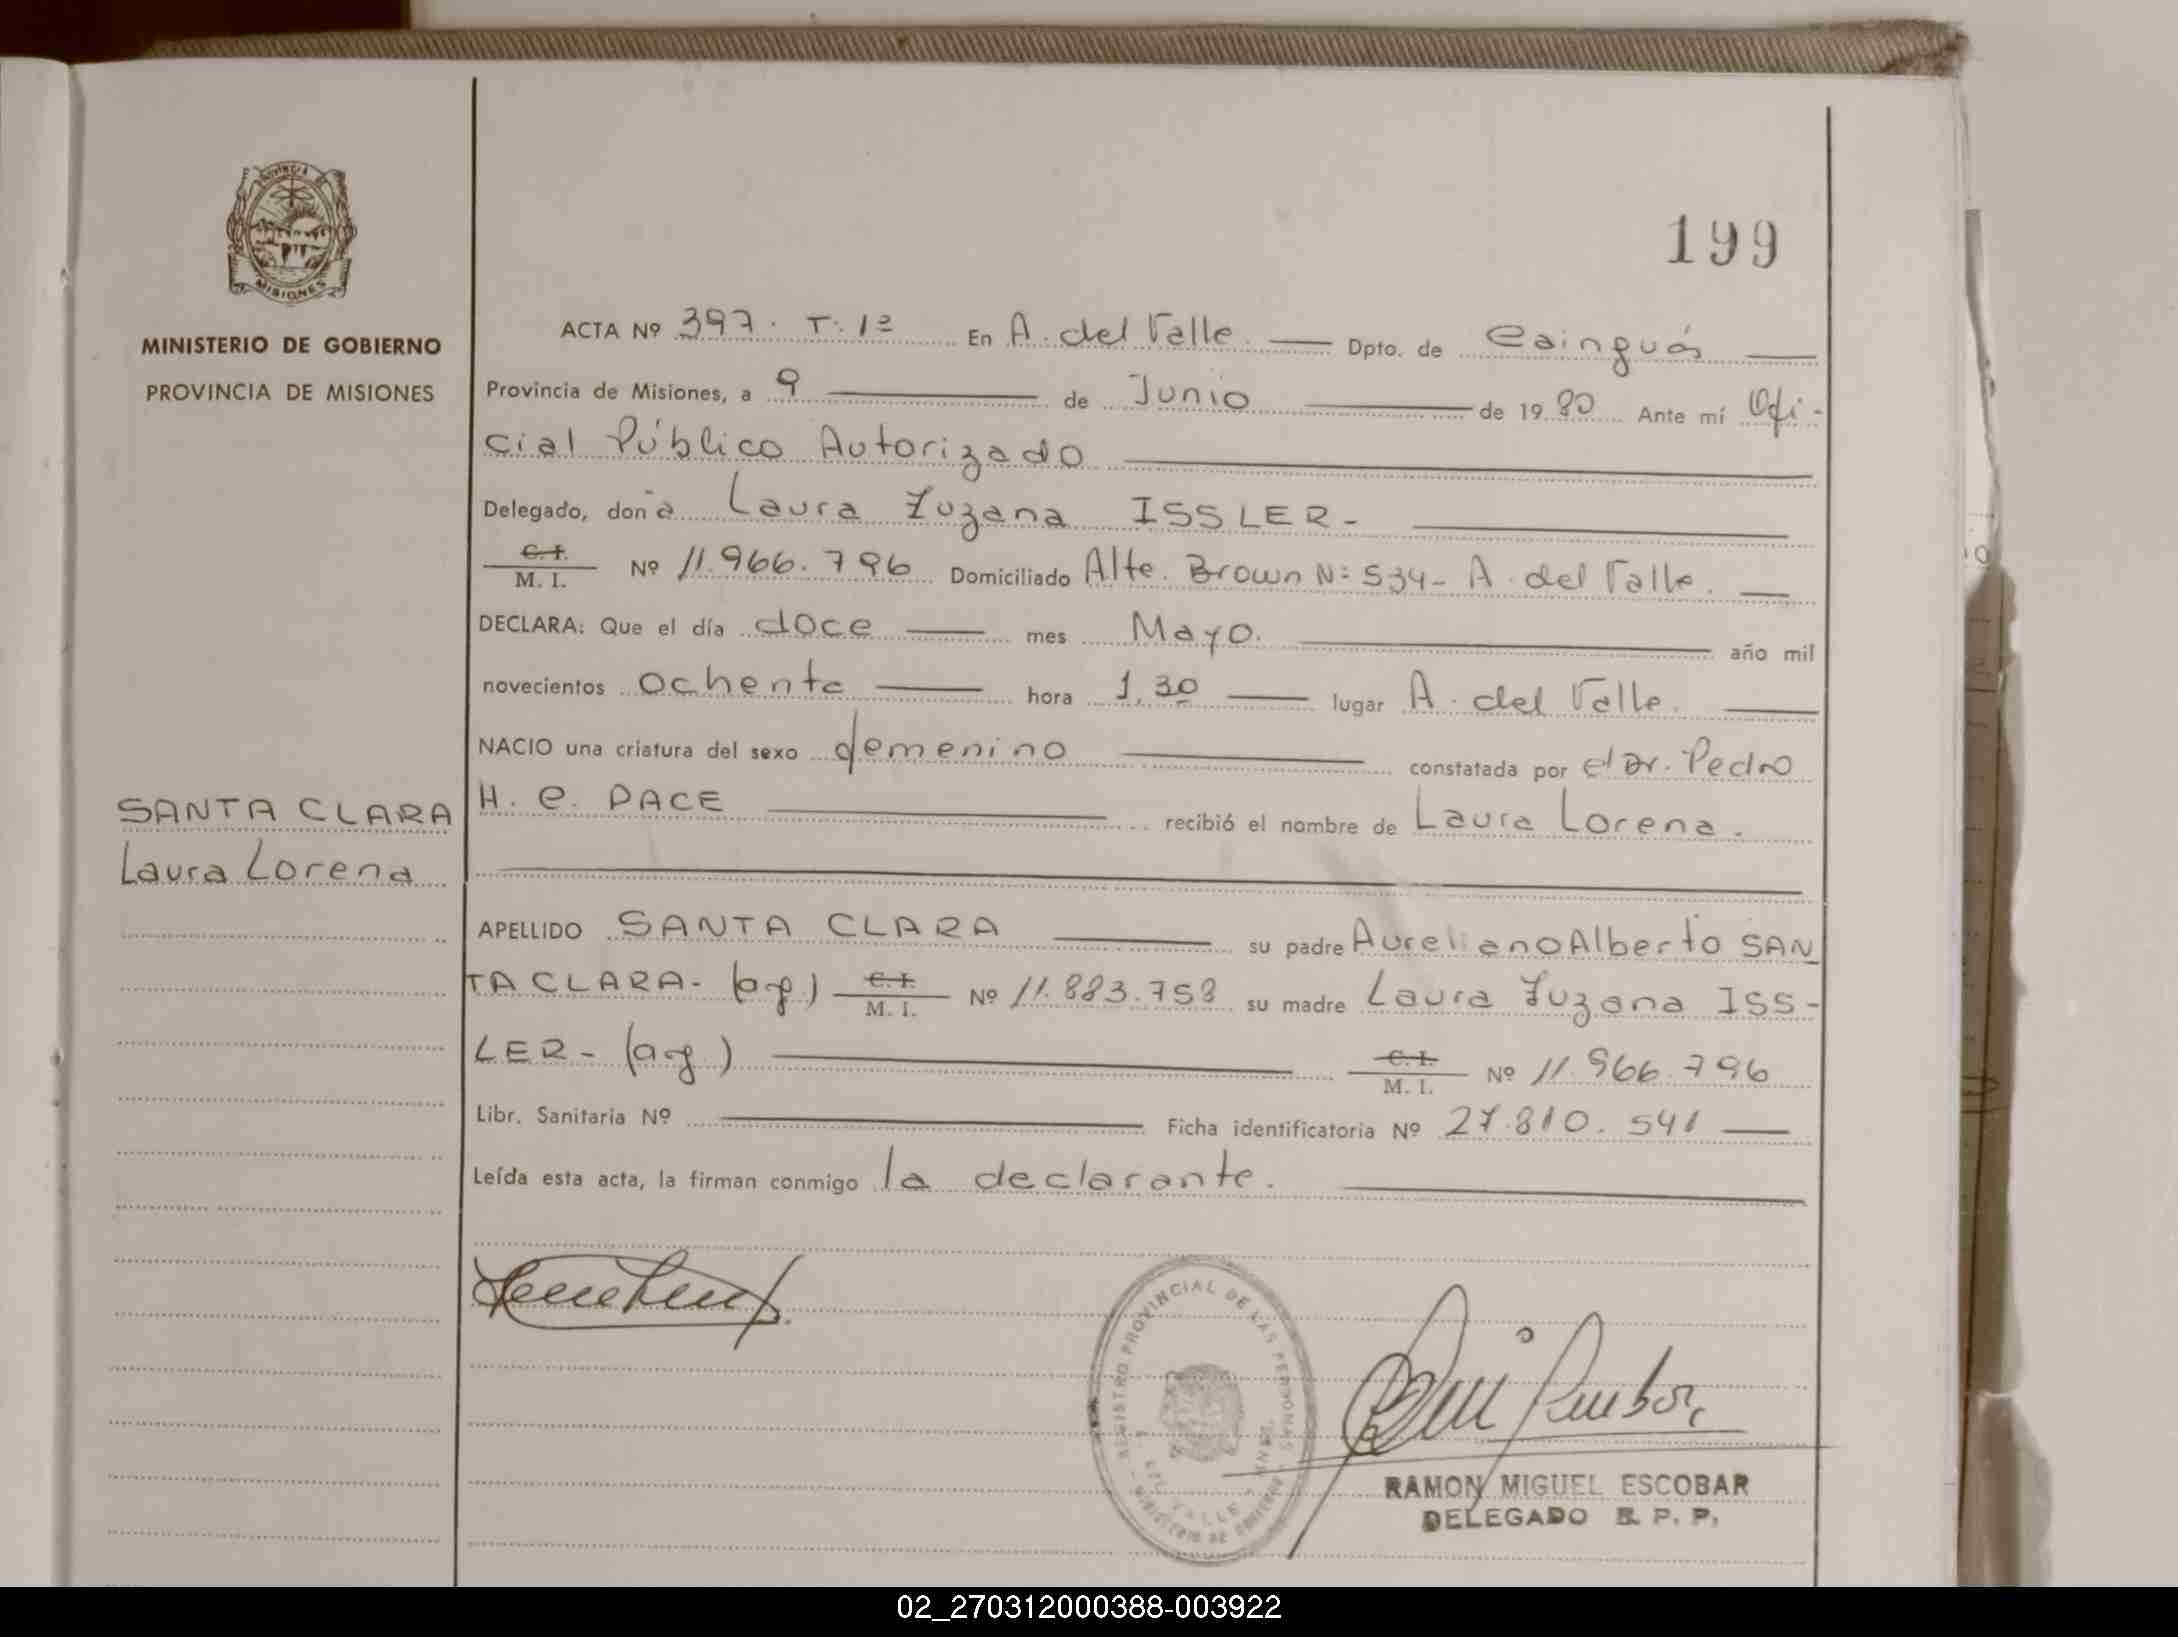 199
PROVINCIA DE
MISIONES
MINISTERIO DE GOBIERNO
PROVINCIA DE MISIONES
ACTA Nº 397. T: 1º En A. del Valle. Dpto. de Cainguás
Provincia de Misiones, a 9 de Junio de 1980 Ante mí Ofi-
cial Público Autorizado
Delegado, doña Laura Zuzana ISSLER-
C. I.
M. I. Nº 11.966.796 Domiciliado Alte. Brown Nº 534- A. del Valle.
DECLARA: Que el día doce mes Mayo. año mil
novecientos ochenta hora 1,30 lugar A. del Valle.
NACIO una criatura del sexo femenino constatada por el Dr. Pedro
H. C. PACE recibió el nombre de Laura Lorena.
SANTA CLARA
Laura Lorena
APELLIDO SANTA CLARA su padre Aureliano Alberto SAN
TA CLARA- (arg.) C. I. M. I. Nº 11.883.758 su madre Laura Zuzana ISS-
LER- (arg.) C. I. M. I. Nº 11.966.796
Libr. Sanitaria Nº Ficha identificatoria Nº 27.810.541
Leída esta acta, la firman conmigo la declarante.
REGISTRO PROVINCIAL DE LAS PERSONAS
MINISTERIO DE GOBIERNO
DEL VALLE
RAMON MIGUEL ESCOBAR
DELEGADO R. P. P.
02_270312000388-003922